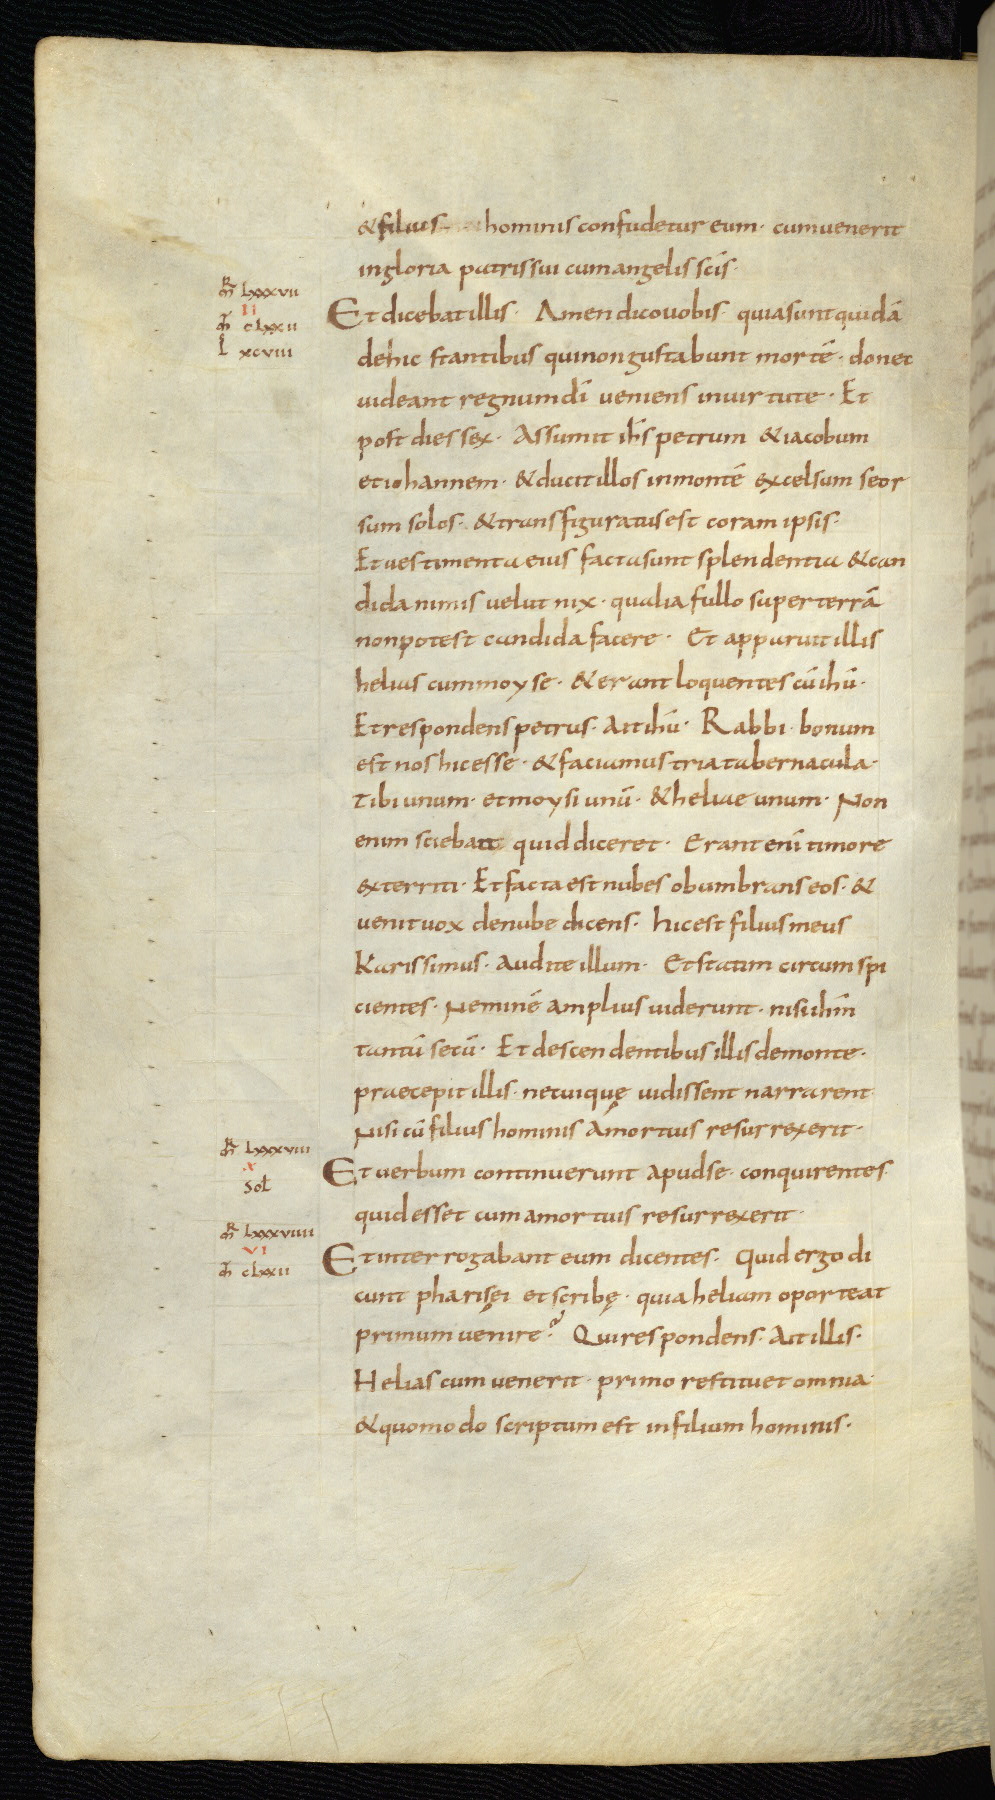 &filius hominis confudetur eum· cum uenerit
in gloria patris sui cum angelis scīs·
mr̄ lxxxvii
ii
mt̄ clxxii
l xcviii
Et dicebat illis· Amen dico uobis· quia sunt quidā
de hic stantibus qui non gustabunt mortē· donec
uideant regnum dī ueniens in uirtute· Et
post dies sex· Assumit ihs petrum & iacobum
et iohannem· & ducit illos in montē excelsum seor
sum solos· & transfiguratus est coram ipsis·
Et uestimenta eius facta sunt splendentia & can
dida nimis uelut nix· qualia fullo super terrā
non potest candida facere· Et apparuit illis
helias cum moyse· & erant loquentes cū ihū·
Et respondens petrus· Ait ihū· Rabbi· bonum
est nos hic esse· & faciamus tria tabernacula·
Tibi unum· et moysi unū· & heliae unum· Non
enim sciebat quid diceret· Erant enī timore
exterriti· Et facta est nubes obumbrans eos· &
uenit uox de nube dicens· hic est filius meus
Karissimus· Audite illum· Et statim circumspi
cientes· Neminē amplius uiderunt· nisi ihm̄
tantū secū· Et descendentibus illis de monte·
praecepit illis· ne cuiquę uidissent narrarent·
Nisi cū filius hominis A mortuis resurrexerit·
mr̄ lxxxviii
x
Sol
Et uerbum continuerunt apud se· conquirentes·
quid esset cum a mortuis resurrexerit·
mr̄ lxxxviiii
vi
mt̄ clxxii
Et interrogabant eum dicentes· Quid ergo di
cunt pharisęi et scribę· quia heliam oporteat
primum uenire? Qui respondens· Ait illis·
Helias cum uenerit· primo restituet omnia·
& quomodo scriptum est in filium hominis·